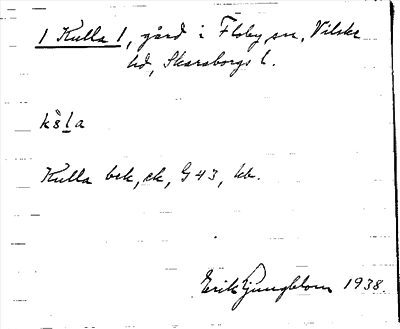 1 Kulla 1, gård i Floby sn, Vilske
hd, Skaraborgs l.
Kulla bek, ek, G 43, kb.
Erik Ljungblom 1938.